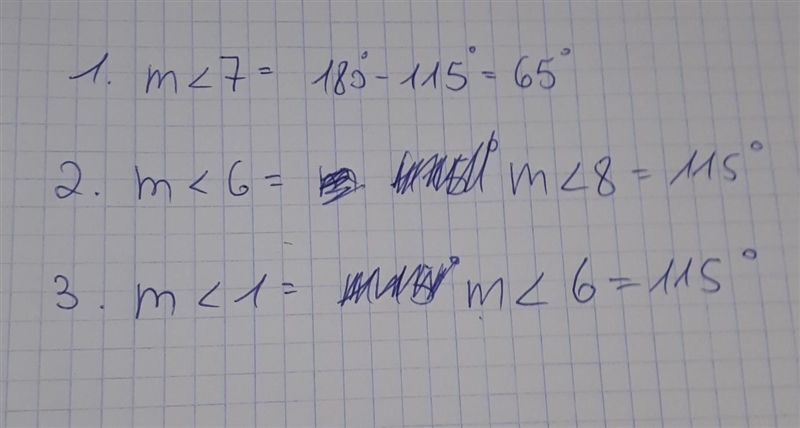 1. m < 7 = 180° - 115° = 65°
2. m < 6 = m < 8 = 115°
3. m < 1 = m < 6 = 115°